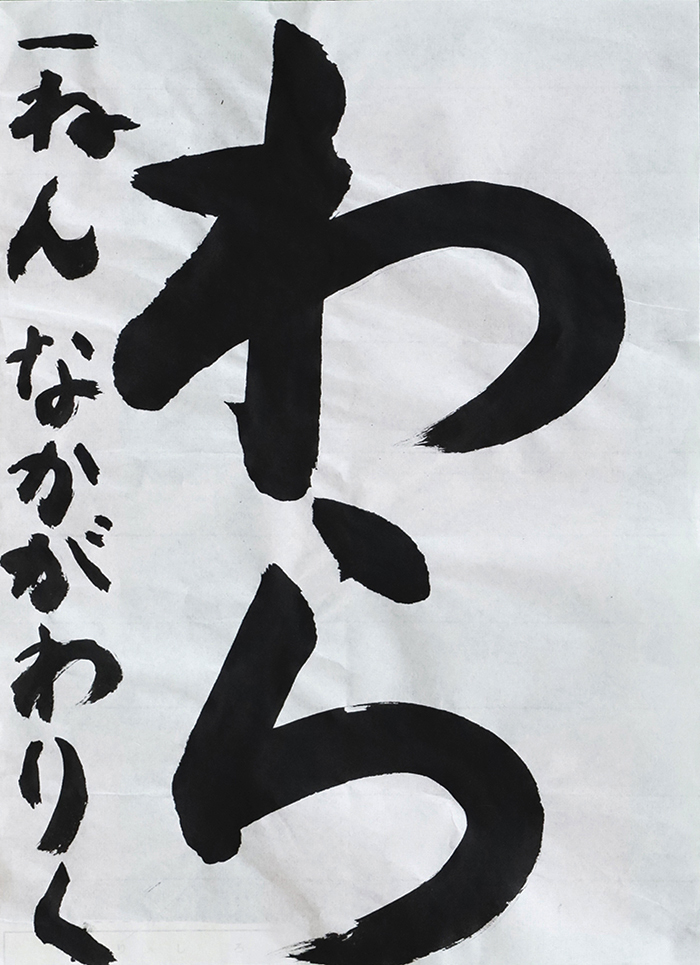 わら
一ねん なかがわりく